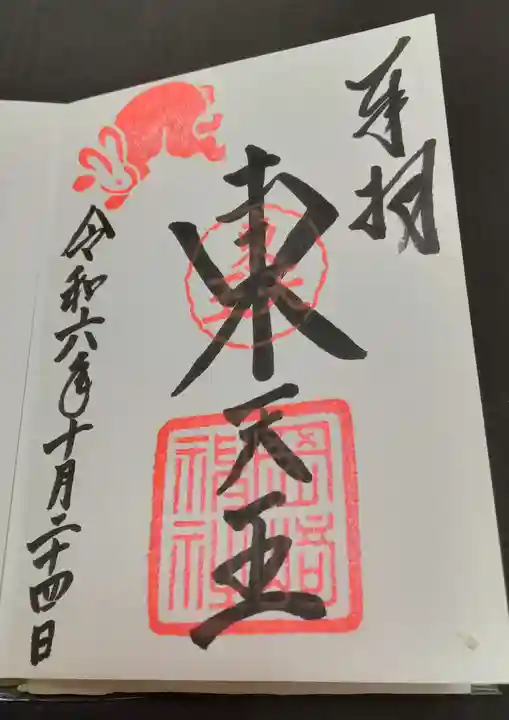 奉拝
東天王
岡崎神社
令和六年十月二十四日